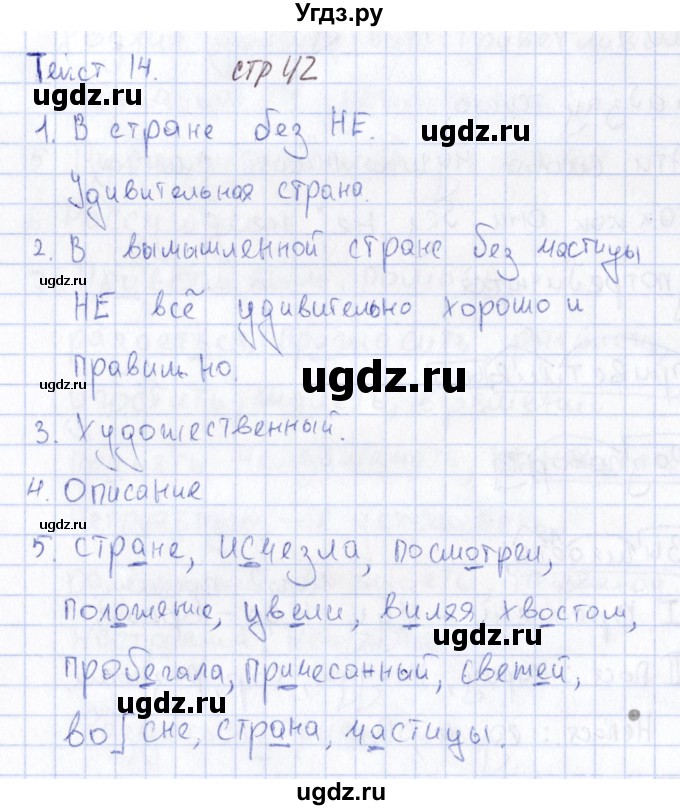 Угдз.ру
Текст 14. стр 42
ugdz.ru
1. В стране без НЕ.
ugdz.ru
Удивительная страна.
ugdz.ru
2. В вымышленной стране без частицы
ugdz.ru
НЕ всё удивительно хорошо и
правильно.
ugdz.ru
ugdz.ru
3. Художественный.
4. Описание
ugdz.ru
5. стране, исчезла, посмотрел,
положение, цвели, виляя хвостом,
ugdz.ru
пробегала, причесанный, свежей,
ugdz.ru
во сне, страна, частицы.
ugdz.ru